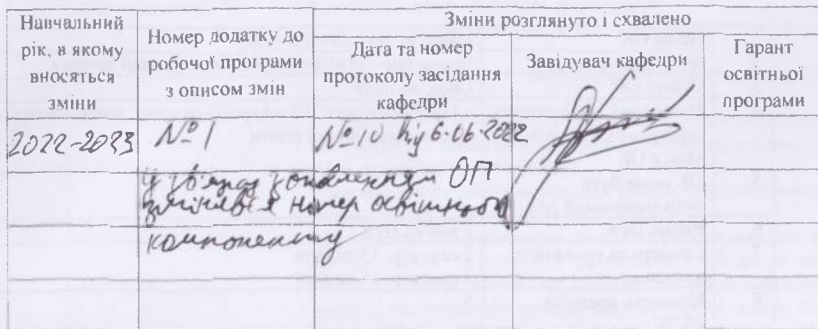 Навчальний рік, в якому вносяться зміни
Номер додатку до робочої програми з описом змін
Зміни розглянуто і схвалено
Дата та номер протоколу засідання кафедри
Завідувач кафедри
Гарант освітньої програми
2022-2023
№1
№10 від 6.06.2022
у зв'язку з оновленням ОП
змінився номер освітнього
компоненту